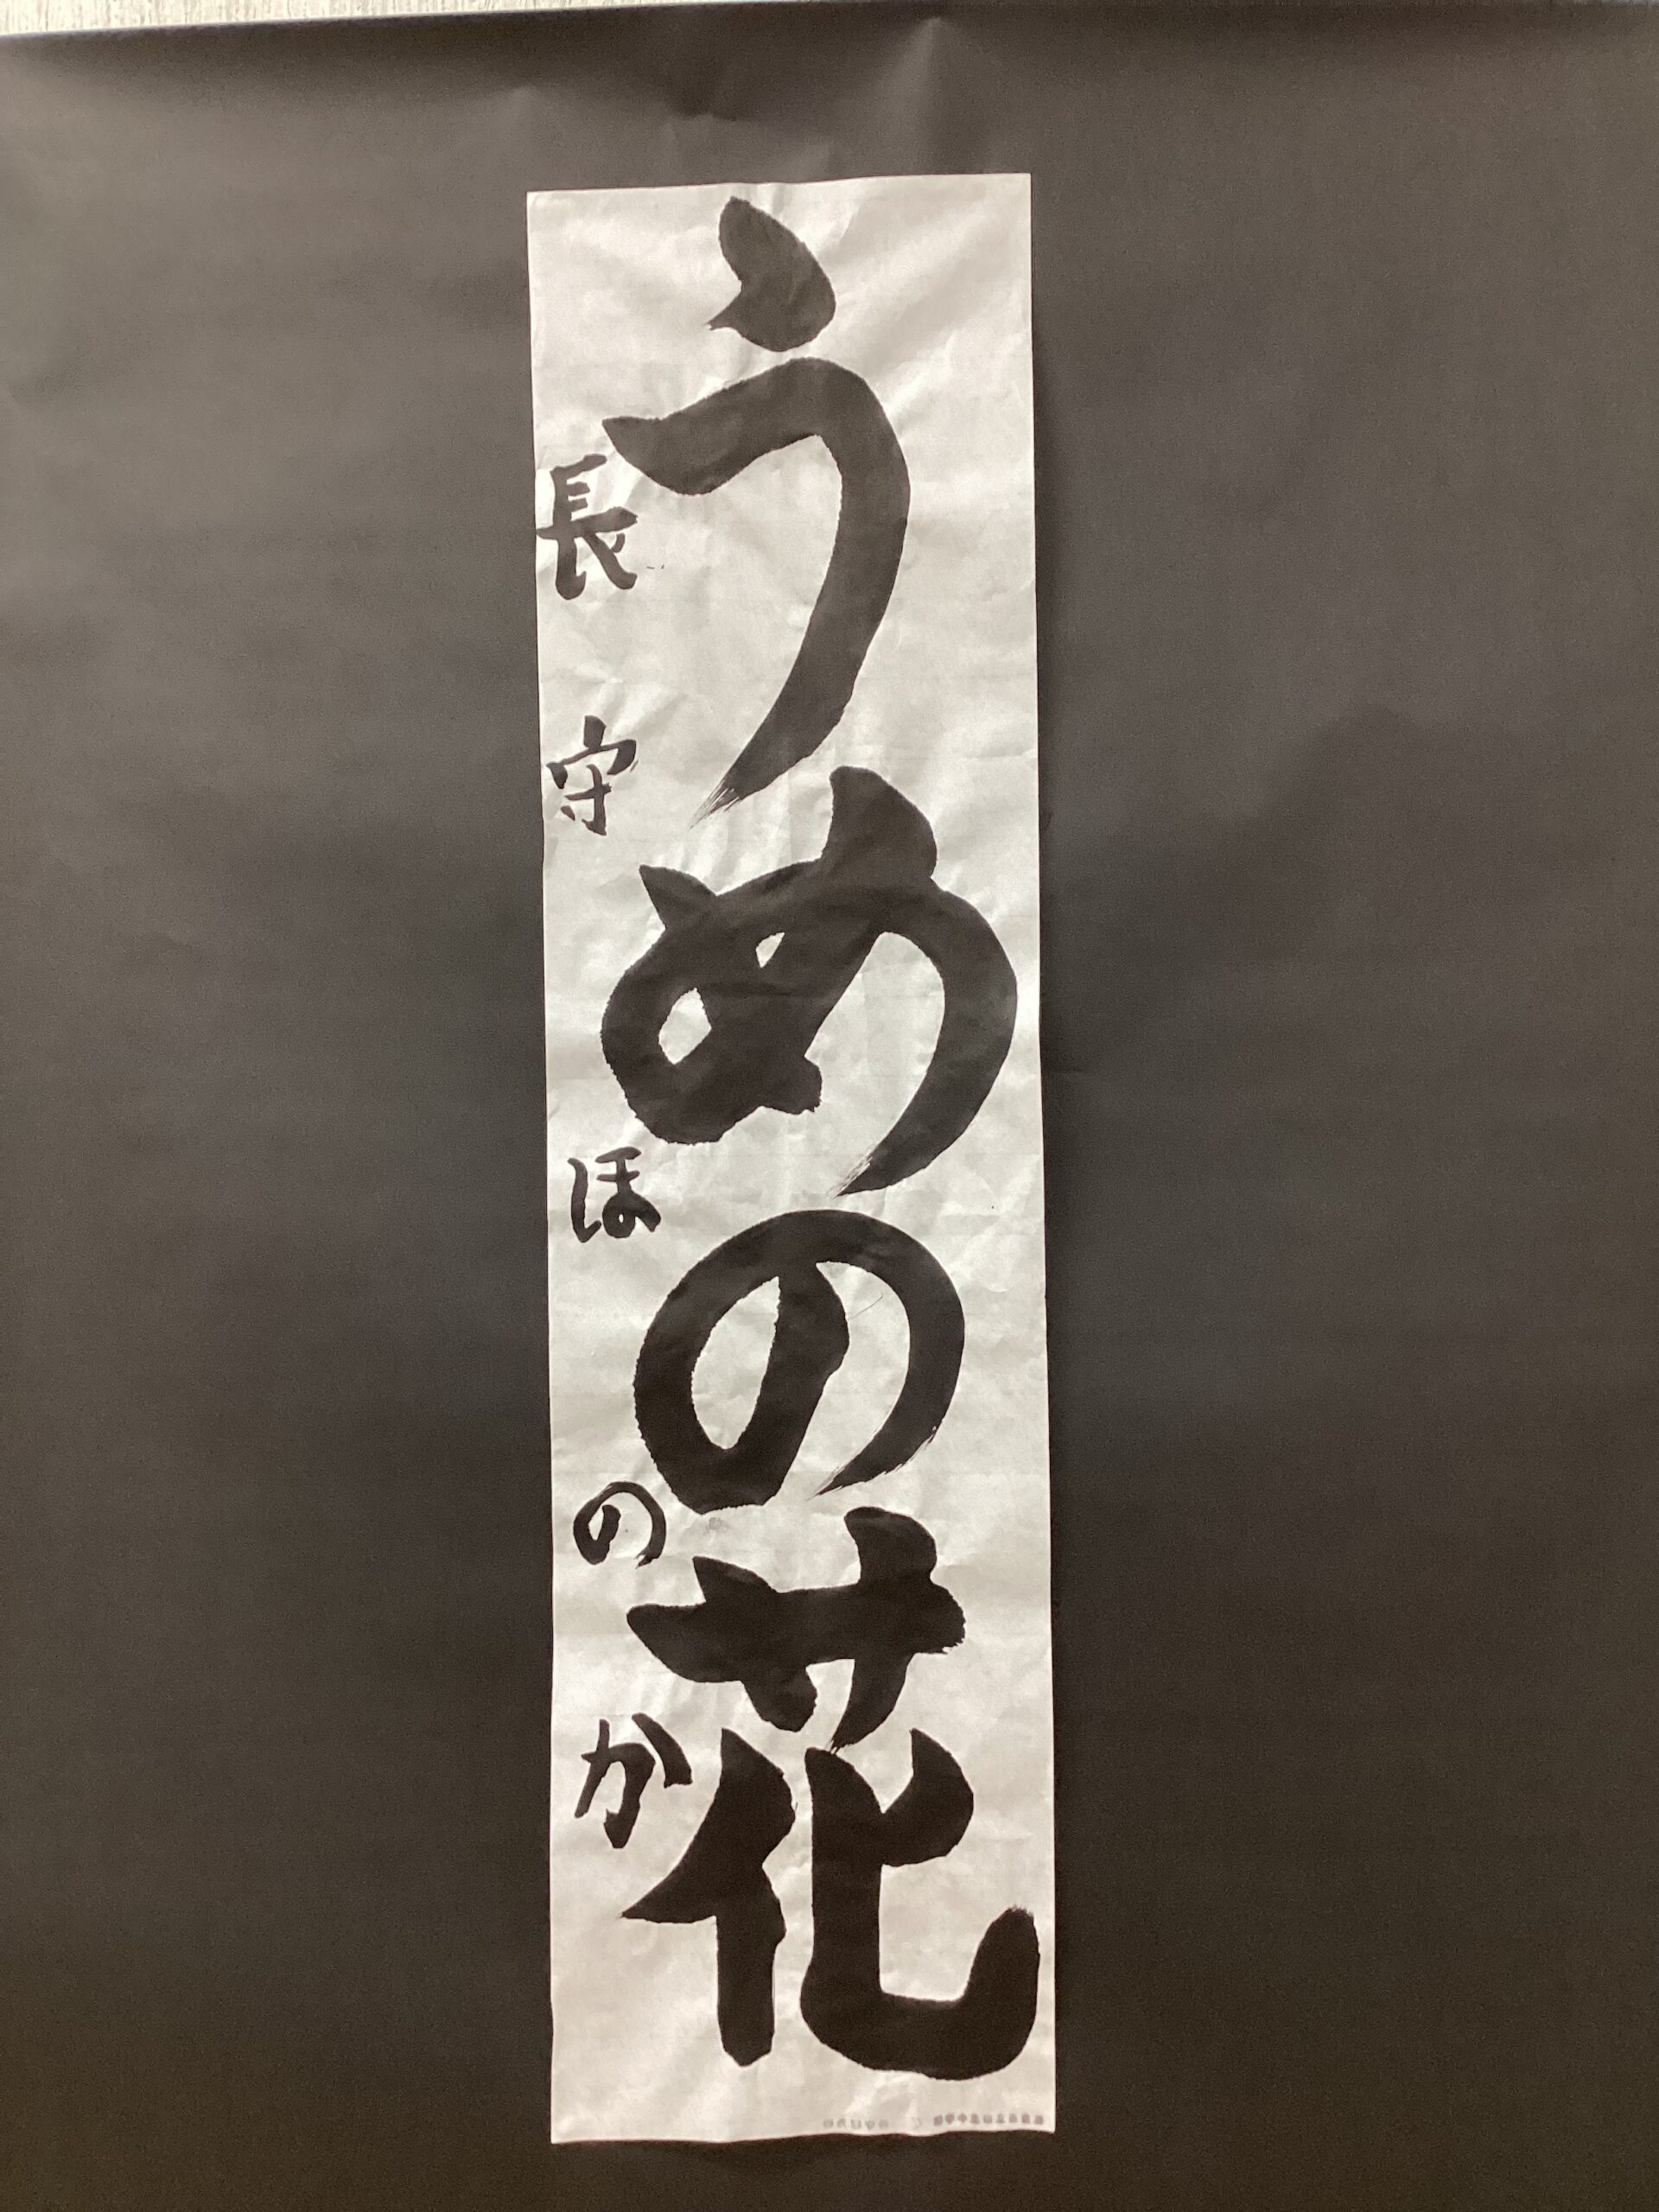 うめの花
長守ほのか